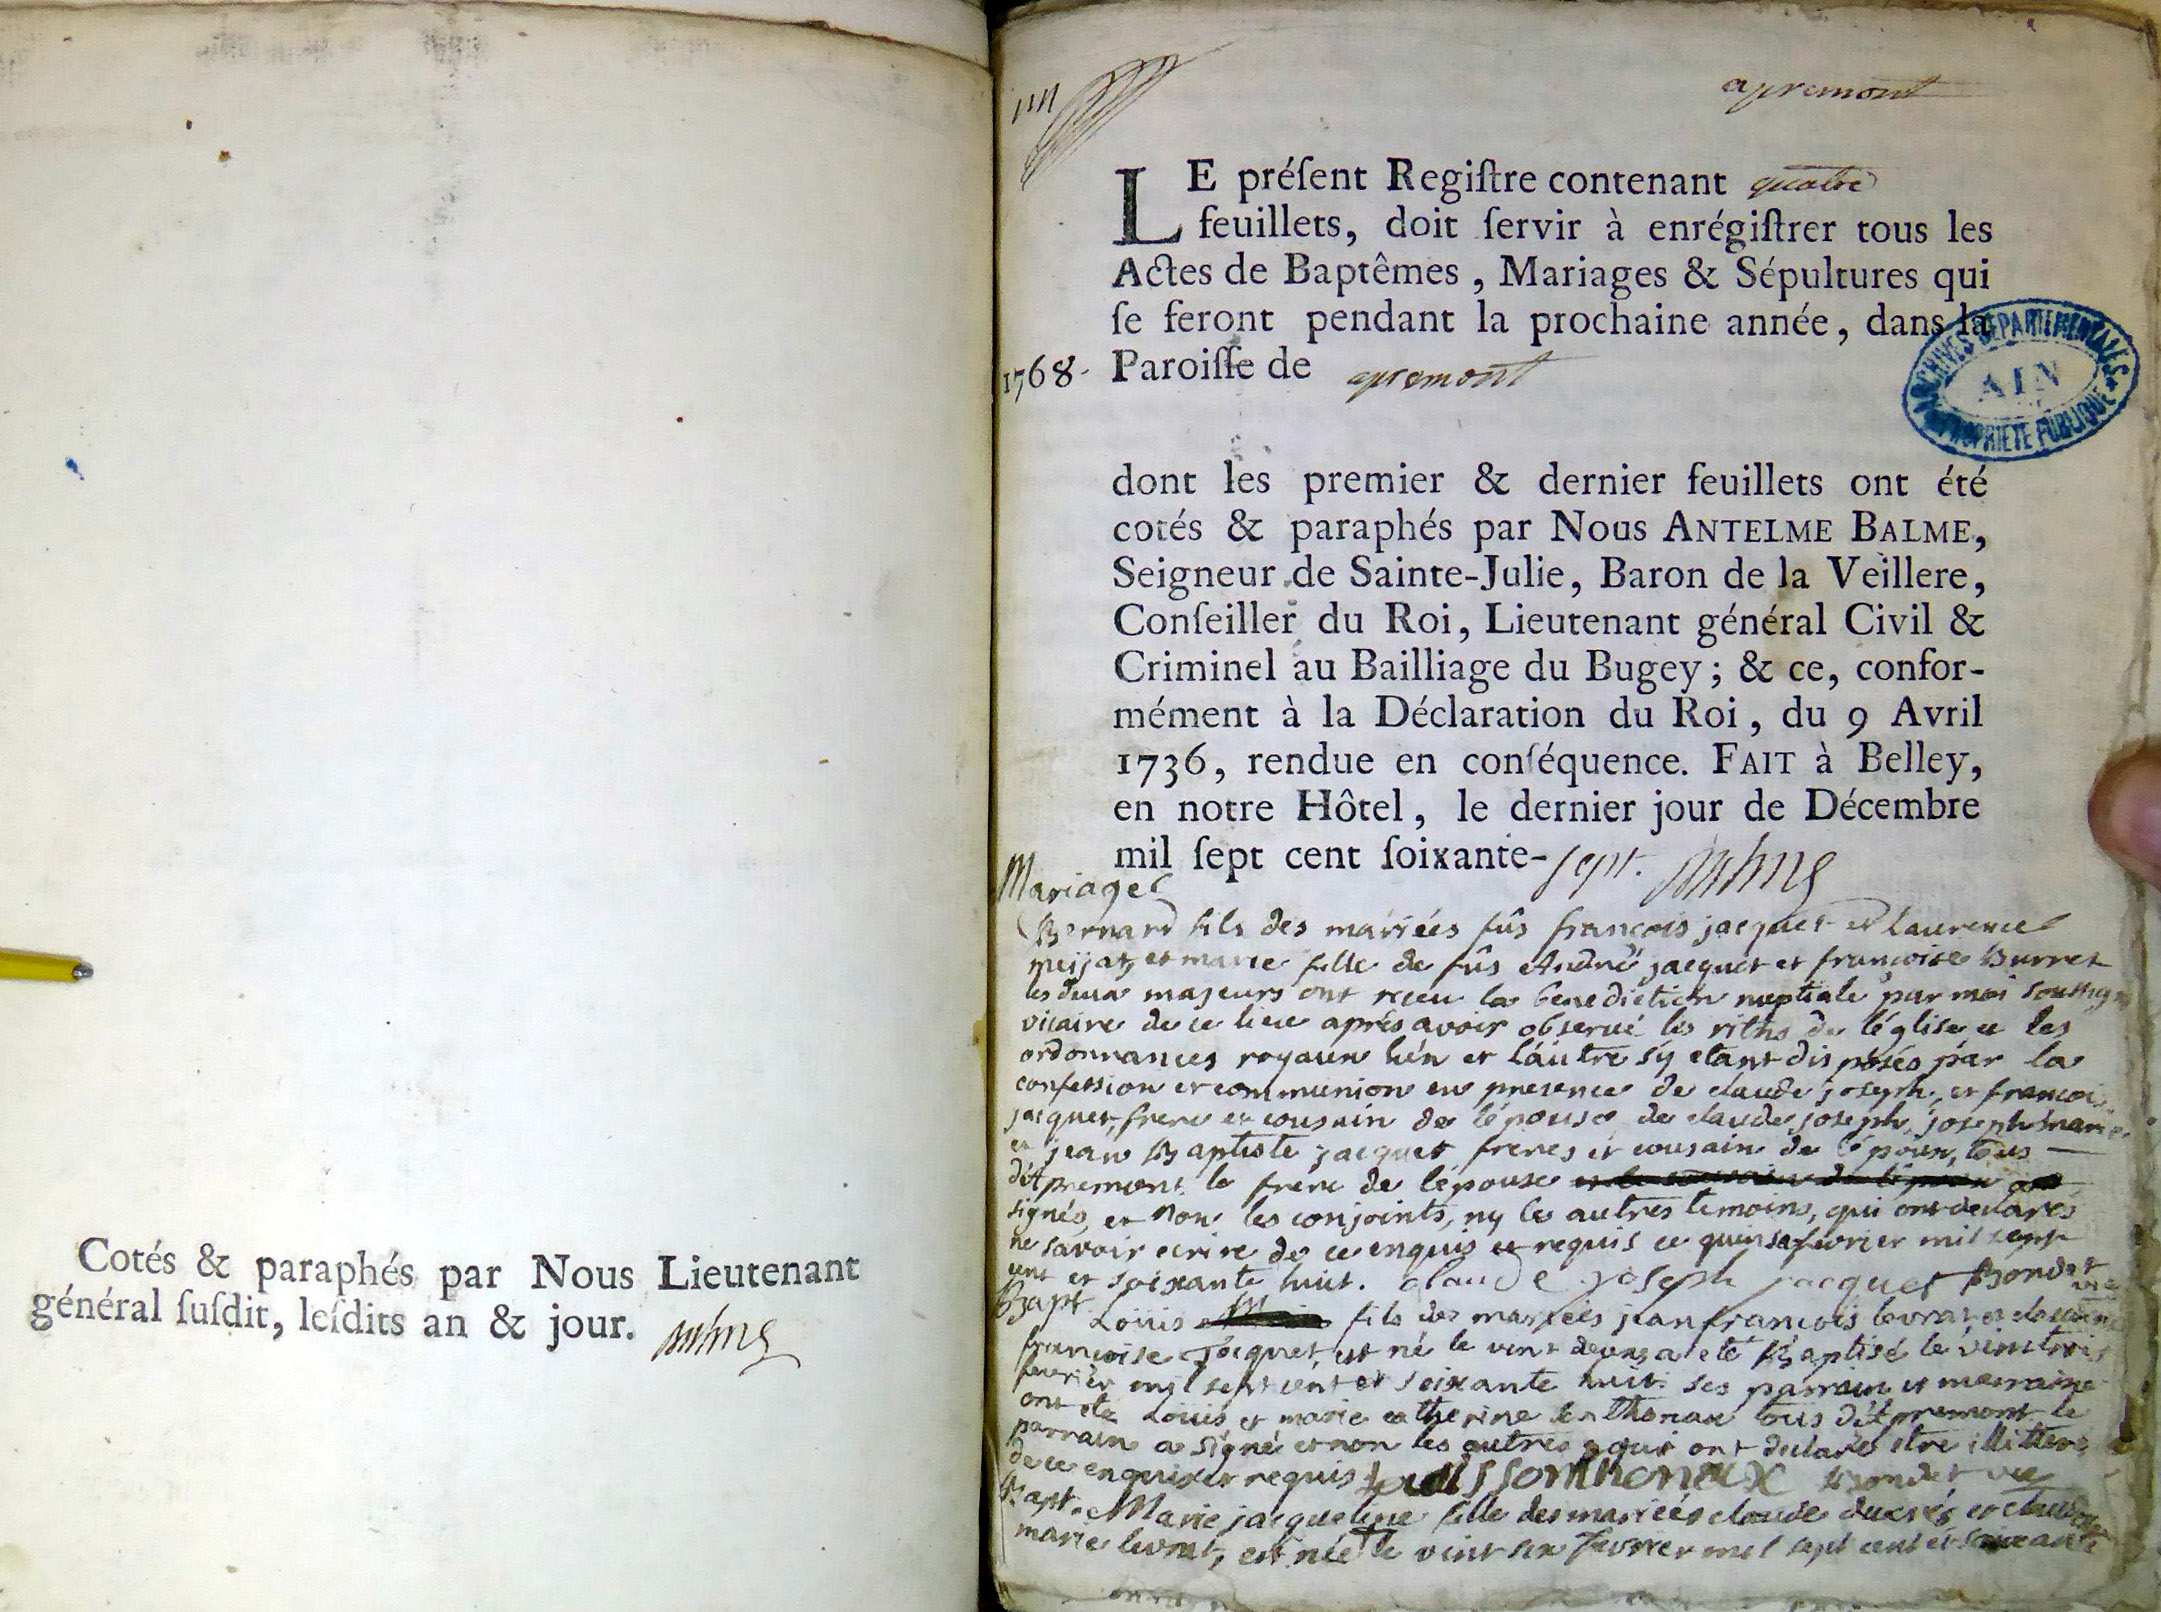 Cotés & paraphés par Nous Lieutenant
général ſuſdit, leſdits an & jour.
apremont
LE préſent Regiſtre contenant quatre
feuillets, doit ſervir à enrégiſtrer tous les
Actes de Baptêmes, Mariages & Sépultures qui
ſe feront pendant la prochaine année, dans la
1768. Paroiſſe de apremont
ARCHIVES DÉPARTEMENTALES
AIN
PROPRIÉTÉ PUBLIQUE
dont les premier & dernier feuillets ont été
cotés & paraphés par Nous ANTELME BALME,
Seigneur de Sainte-Julie, Baron de la Veillere,
Conſeiller du Roi, Lieutenant général Civil &
Criminel au Bailliage du Bugey; & ce, confor-
mément à la Déclaration du Roi, du 9 Avril
1736, rendue en conſéquence. FAIT à Belley,
en notre Hôtel, le dernier jour de Décembre
mil ſept cent ſoixante-sept.
Mariage
Bernard fils des mariées fûs françois jacquet et Laurence
et marie fille de fûs André jacquet et françoise Burret
les deux majeurs ont receu la benediction nuptiale par moi
vicaire de ce lieu aprés avoir observé les riths de léglise et les
ordonnances royaux l'un et láutre sÿ etant disposés par la
confession et communion en presence de claude joseph, et francois
jacquet, frere et cousin de lépouse de claude joseph, joseph marie
et jean Baptiste jacquet freres et cousain de lépoux, tous
d'Apremont le frere de lépouse
signés, et non les conjoints, ny les autres temoins, qui ont declarés
ne savoir ecrire de ce enquis et requis ce fevrier mil sept
cent et soixante huit. claude joseph jacquet Bondet vic
Bapt. Louis fils des mariées jean francois levrat et
françoise Jacquet, est né le vint deux, a eté Baptisé le vint trois
fevrier mil sept cent et soixante huit. ses parrain et marraine
ont eté Louis et marie catherine Sonthonax tous d'Apremont le
parrain a signé et non les autres qui ont declarés etre illitterés
de ce enquis et requis Louis Sonthonax Bondet vic
Bapt. Marie jacqueline fille des mariées claude ducrés et claudine
marie levrat, est née le vint six fevrier mil sept cent et soixante